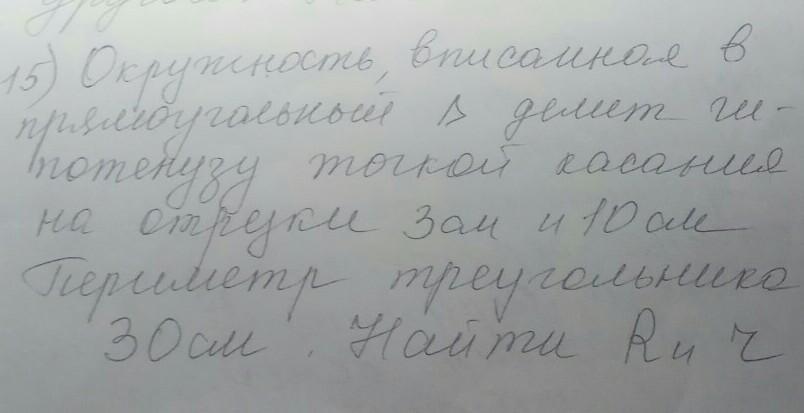 15) Окружность, вписанная в
прямоугольный △ делит ги-
потенузу точкой касания
на отрезки 3см и 10см
Периметр треугольника
30см. Найти R и r